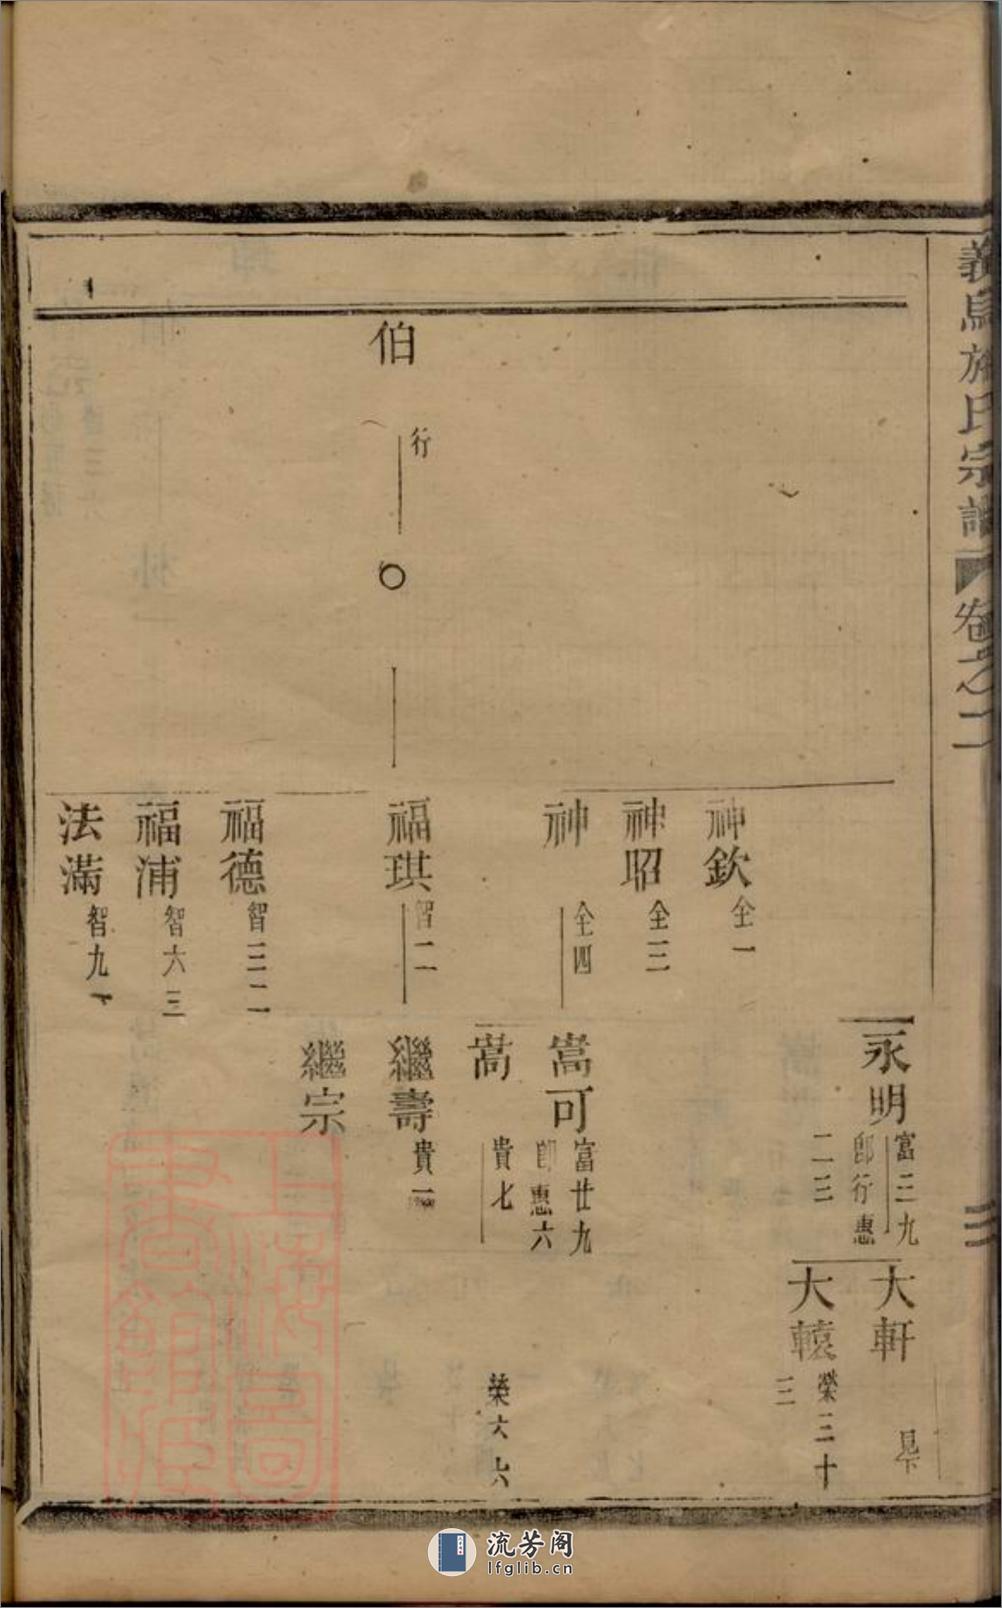 義烏施氏宗譜
卷之二
三
伯
行
神欽
全一
神昭
全三
神
全四
福琪
智二
福德
智三二
福浦
智六三
法滿
智九一
永明
富三九
即行惠
二三
嵩可
富廿九
即惠六
嵩
貴七
繼壽
貴一
繼宗
大軒
大轅
榮三十
三
榮六六
上海圖書館藏
流芳阁
lfglib.cn